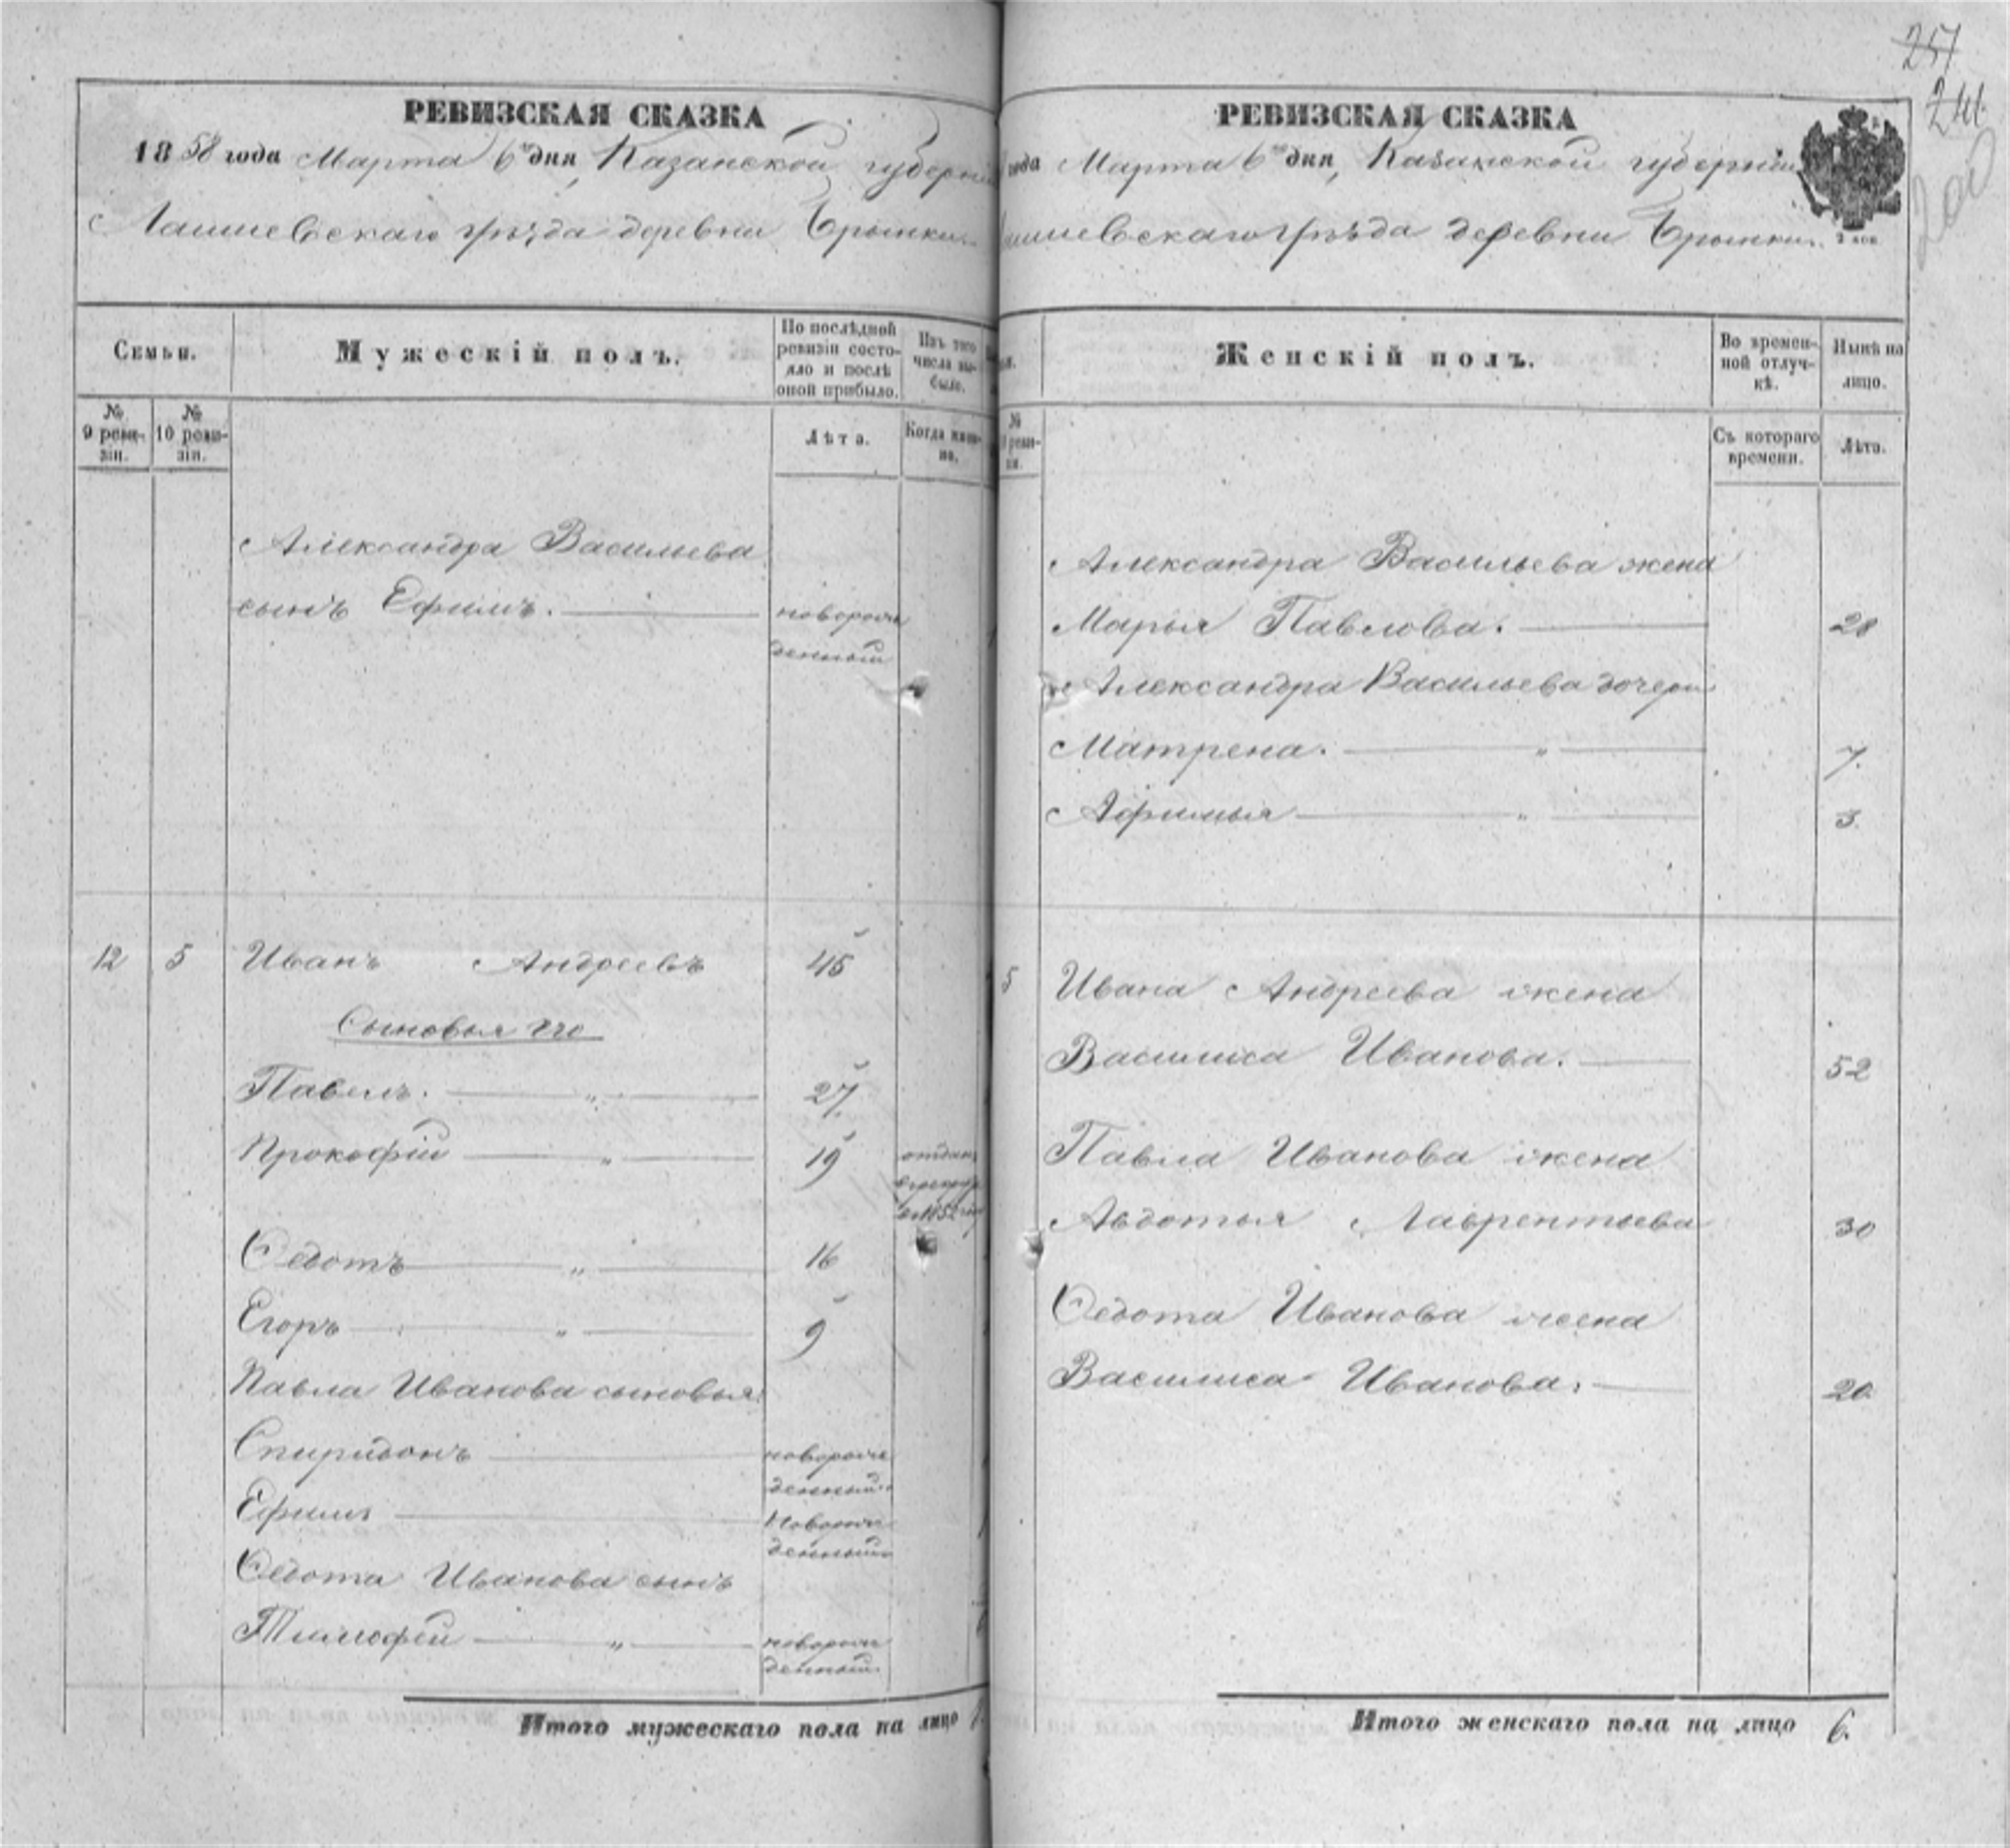 РЕВИЗСКАЯ СКАЗКА
1858 года Марта 6го дня, Казанской губерніи
Лаишевскаго уѣзда деревни Брынки.
Семьи.
Мужескій полъ.
По послѣдней ревизіи состояло и послѣ оной прибыло.
Изъ того числа выбыло.
№ 9 ревизіи.
№ 10 ревизіи.
Лѣта.
Когда именно.
Александра Васильева
сынъ Ефимъ.
новорож
денный
12 5 Иванъ Андреевъ 45
Сыновья его
Павелъ. " 27.
Прокофій " 19 отдан
в рекру
в 1852 го
Ѳедотъ " 16
Егоръ " 9
Павла Иванова сыновья:
Спиридонъ новорож
денный.
Ефимъ новорож
денный
Ѳедота Иванова сынъ
Тимофей " новорож
денный.
Итого мужескаго пола на лицо
257
241
РЕВИЗСКАЯ СКАЗКА
года Марта 6го дня, Казанской губерніи
аишевскаго уѣзда деревни Брынки.
2 коп.
Женскій полъ.
Во временной отлучкѣ.
Нынѣ на лицо.
№
реви-
зіи.
Съ котораго времени.
Лѣта.
Александра Васильева жена
Марья Павлова. 28
Александра Васильева дочери
Матрена. " 7.
Афимья " 3.
5 Ивана Андреева жена
Василиса Иванова. 52
Павла Иванова жена
Авдотья Лаврентьева 30
Ѳедота Иванова жена
Василиса Иванова. 20
Итого женскаго пола на лицо 6.